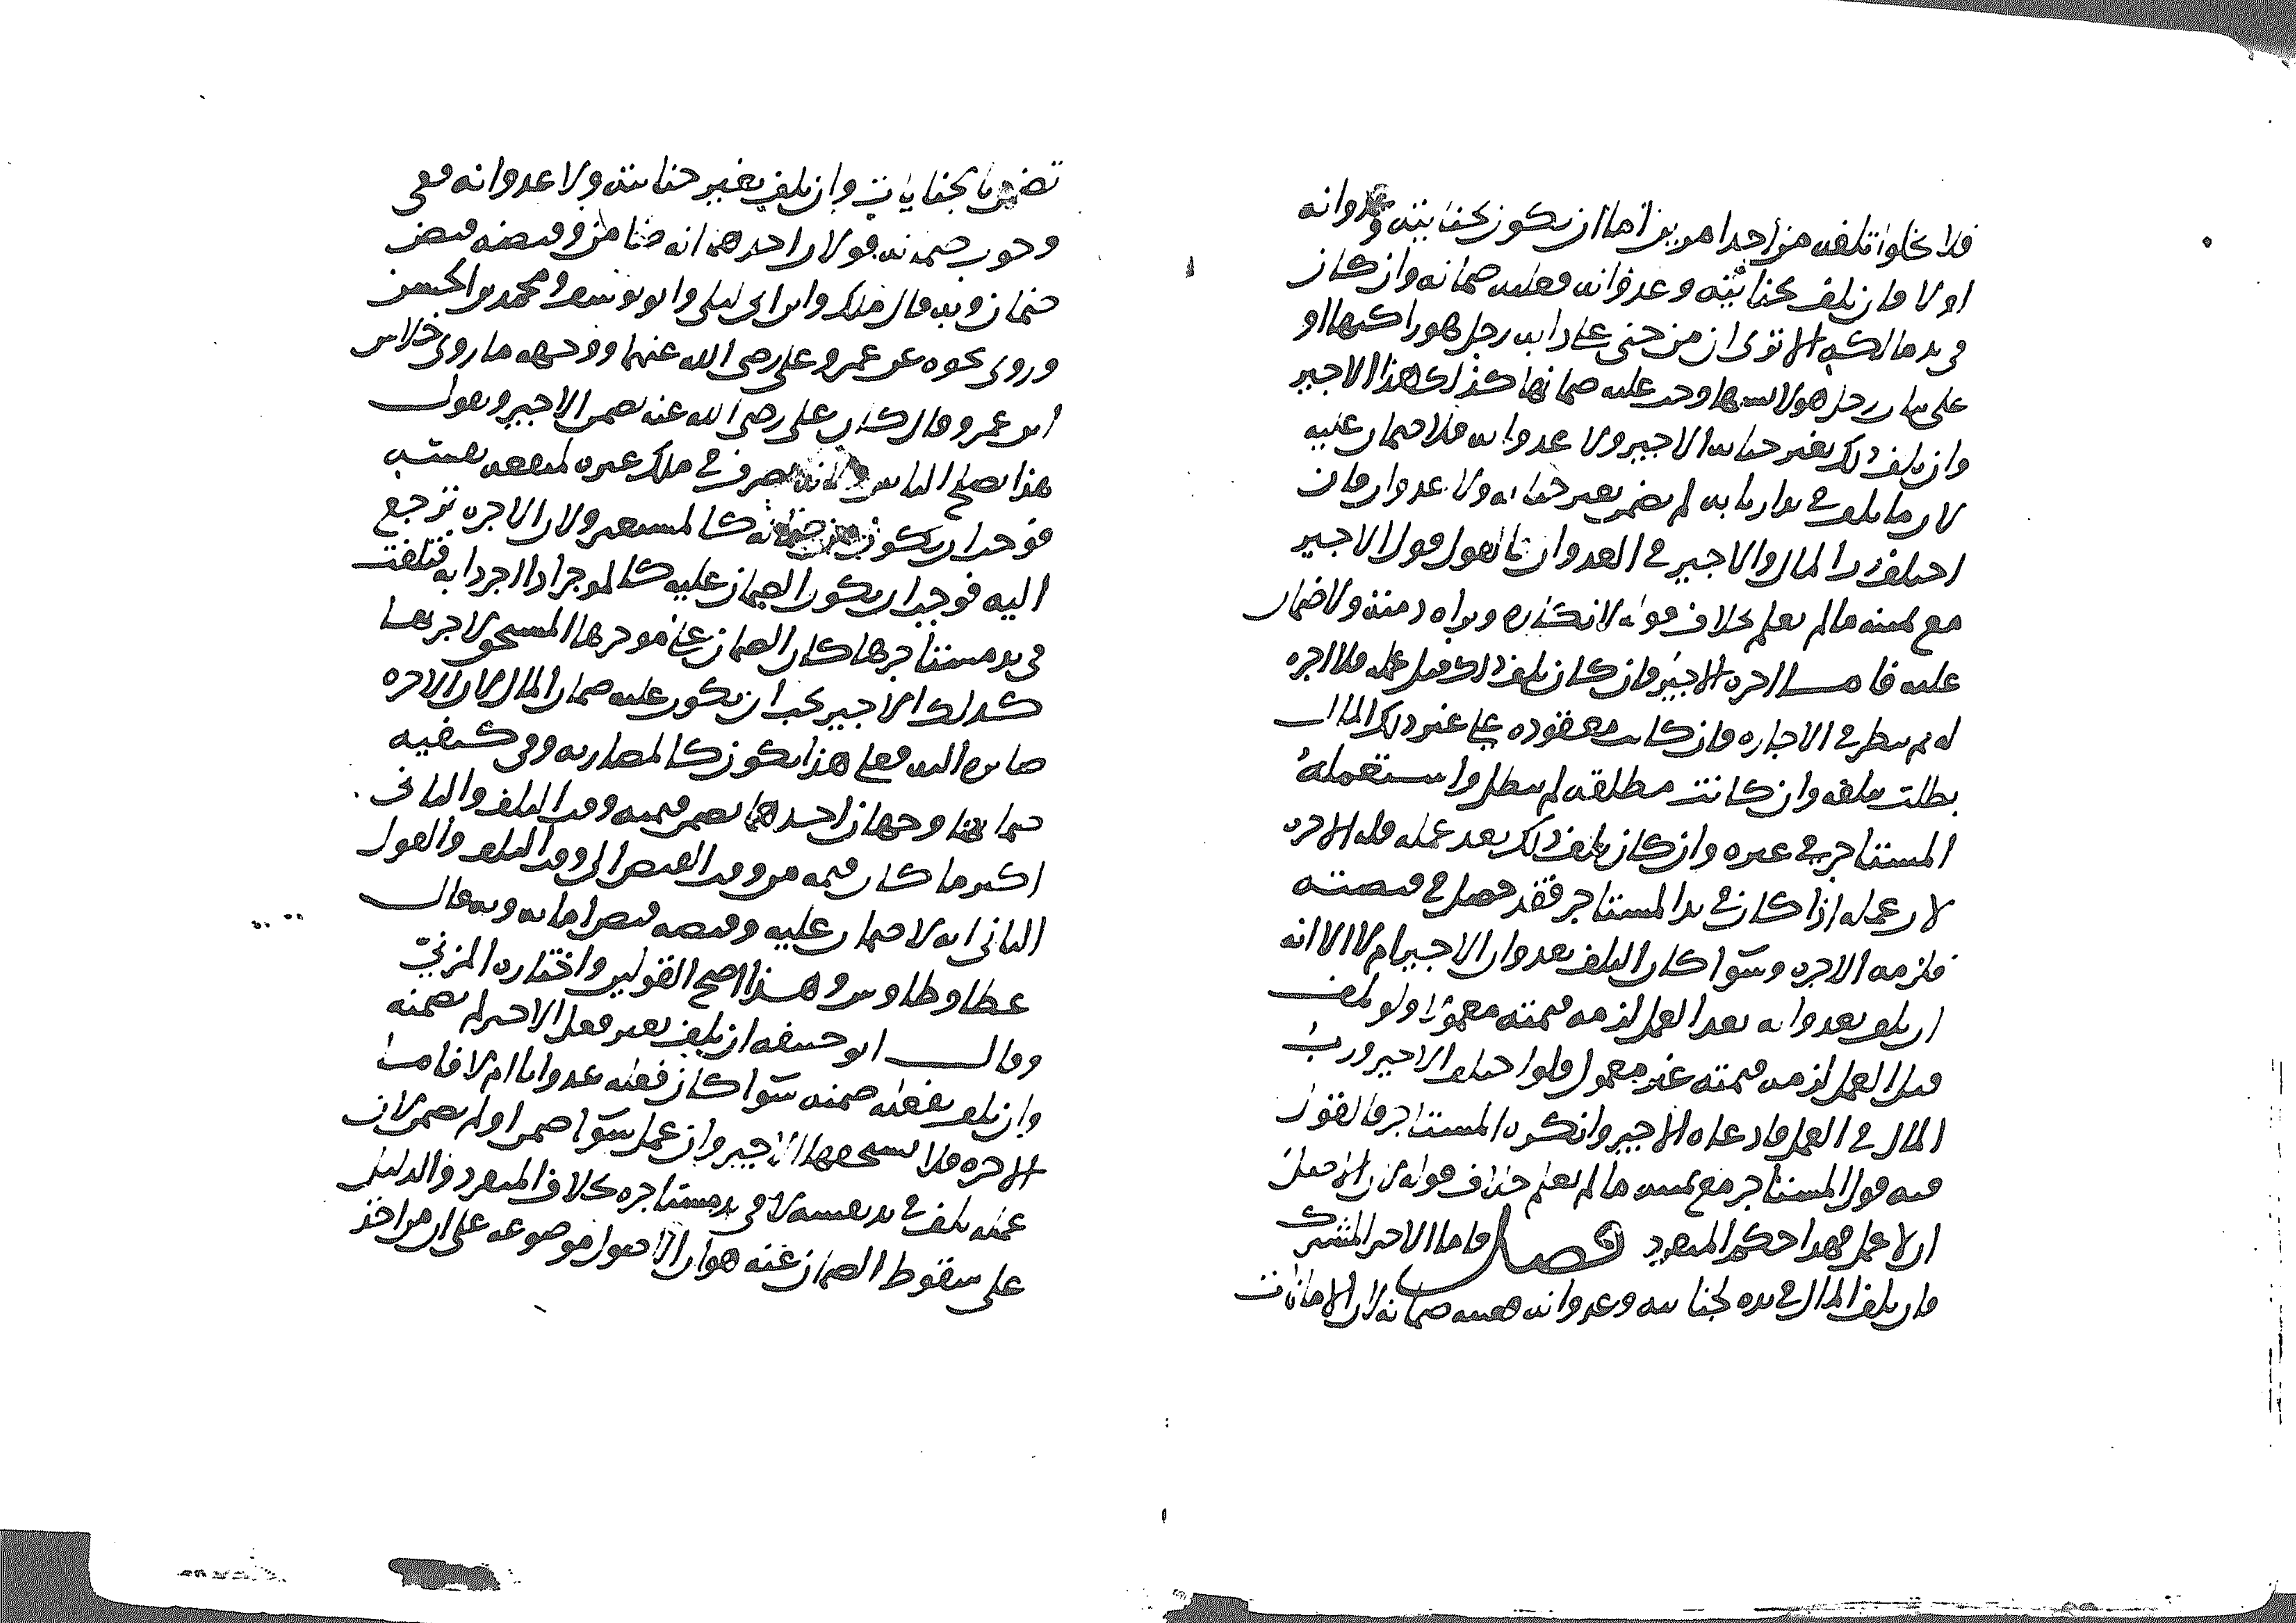 فلا يخلوا تلفه من احد امرين اما ان يكون بجنايته وعدوانه
او لا فان تلف بجنايته وعدوانه فعليه ضمانه وان كان
في يد مالكه الا ترى ان من جنى على دابه رجل هو راكبها او
على ثياب رجل هو لابسها وجب عليه ضمانها كذلك هذا الاجير
وان تلف ذلك بغير جنايه الاجير ولا عدوانه فلا ضمان عليه
لان ما تلف في يد اربابه لم يضمن بغير جنايه ولا عدوان فان
اختلف رب المال والاجير في العدوان فالقول قول الاجير
مع يمينه ما لم يعلم خلاف قوله لانكاره وبراه ذمته ولا ضمان
عليه فاما اجره الاجير فان كان تلف ذلك قبل عمله فلا اجره
له ثم ينظر في الاجاره فان كانت معقوده على عين ذلك المال
بطلت بتلفه وان كانت مطلقه لم تبطل واستعمله
المستاجر في غيره وان كان تلف ذلك بعد عمله فله الاجره
لان عمله اذا كان في يد المستاجر فقد حصل في قبضته
فلزمه الاجره وسوا كان التلف بعدوان الاجير ام لا الا انه
ان تلف بعدوانه بعد العمل لزمه قيمته معمولا ولو تلف
قبل العمل لزمه قيمته غير معمول فلو اختلف الاجير ورب
المال في العمل فادعاه الاجير وانكره المستاجر فالقول
فيه قول المستاجر مع يمينه ما لم يعلم خلاف قوله لان الاصل
ان لا عمل فهذا حكم المنفرد فصل فاما الاجير المشترك
فان تلف المال في يده بجنايته وعدوانه فعليه ضمانه لان الامانات
تضمن بالجنايات وان تلف بغير جنايته ولا عدوانه ففي
وجوب ضمانه قولان احدهما انه ضامن وقبضه قبض
ضمان وبه قال مالك وابن ابي ليلى وابو يوسف ومحمد بن الحسن
وروى نحوه عن عمر وعلي رضي الله عنهما ووجهه ما روى خلاس
ابن عمرو قال كان علي رضي الله عنه يضمن الاجير ويقول
هذا يصلح الناس ولانه تصرف في ملك غيره لمنفعه نفسه
فوجب ان يكون من ضمانه كالمستعير ولان الاجره ترجع
اليه فوجب ان يكون الضمان عليه كالموجر اذا اجر دابه فتلفت
في يد مستاجرها كان الضمان على موجرها المستحق لاجرتها
كذلك الاجير يجب ان يكون عليه ضمان المال لان الاجره
صايره اليه فعلى هذا يكون كالمضاربه وفي كيفيه
ضمانها وجهان احدهما يضمن قيمته وقت التلف والثاني
اكثر ما كان قيمه من وقت القبض الى وقت التلف والقول
الثاني انه لا ضمان عليه وقبضه قبض امانه وبه قال
عطا وطاوس وهذا اصح القولين واختاره المزني
وقال ابو حنيفه ان تلف بغير فعل الاجير لم يضمنه
وان تلف بفعله ضمنه سوا كان فعله عدوانا ام لا فاما
الاجره فلا يستحقها الاجير وان عمل سوا ضمن او لم يضمن لان
عمله تلف في يد نفسه لا في يد مستاجره بخلاف المنفرد والدليل
على سقوط الضمان عنه هو ان الاصول موضوعه على ان من اخذ